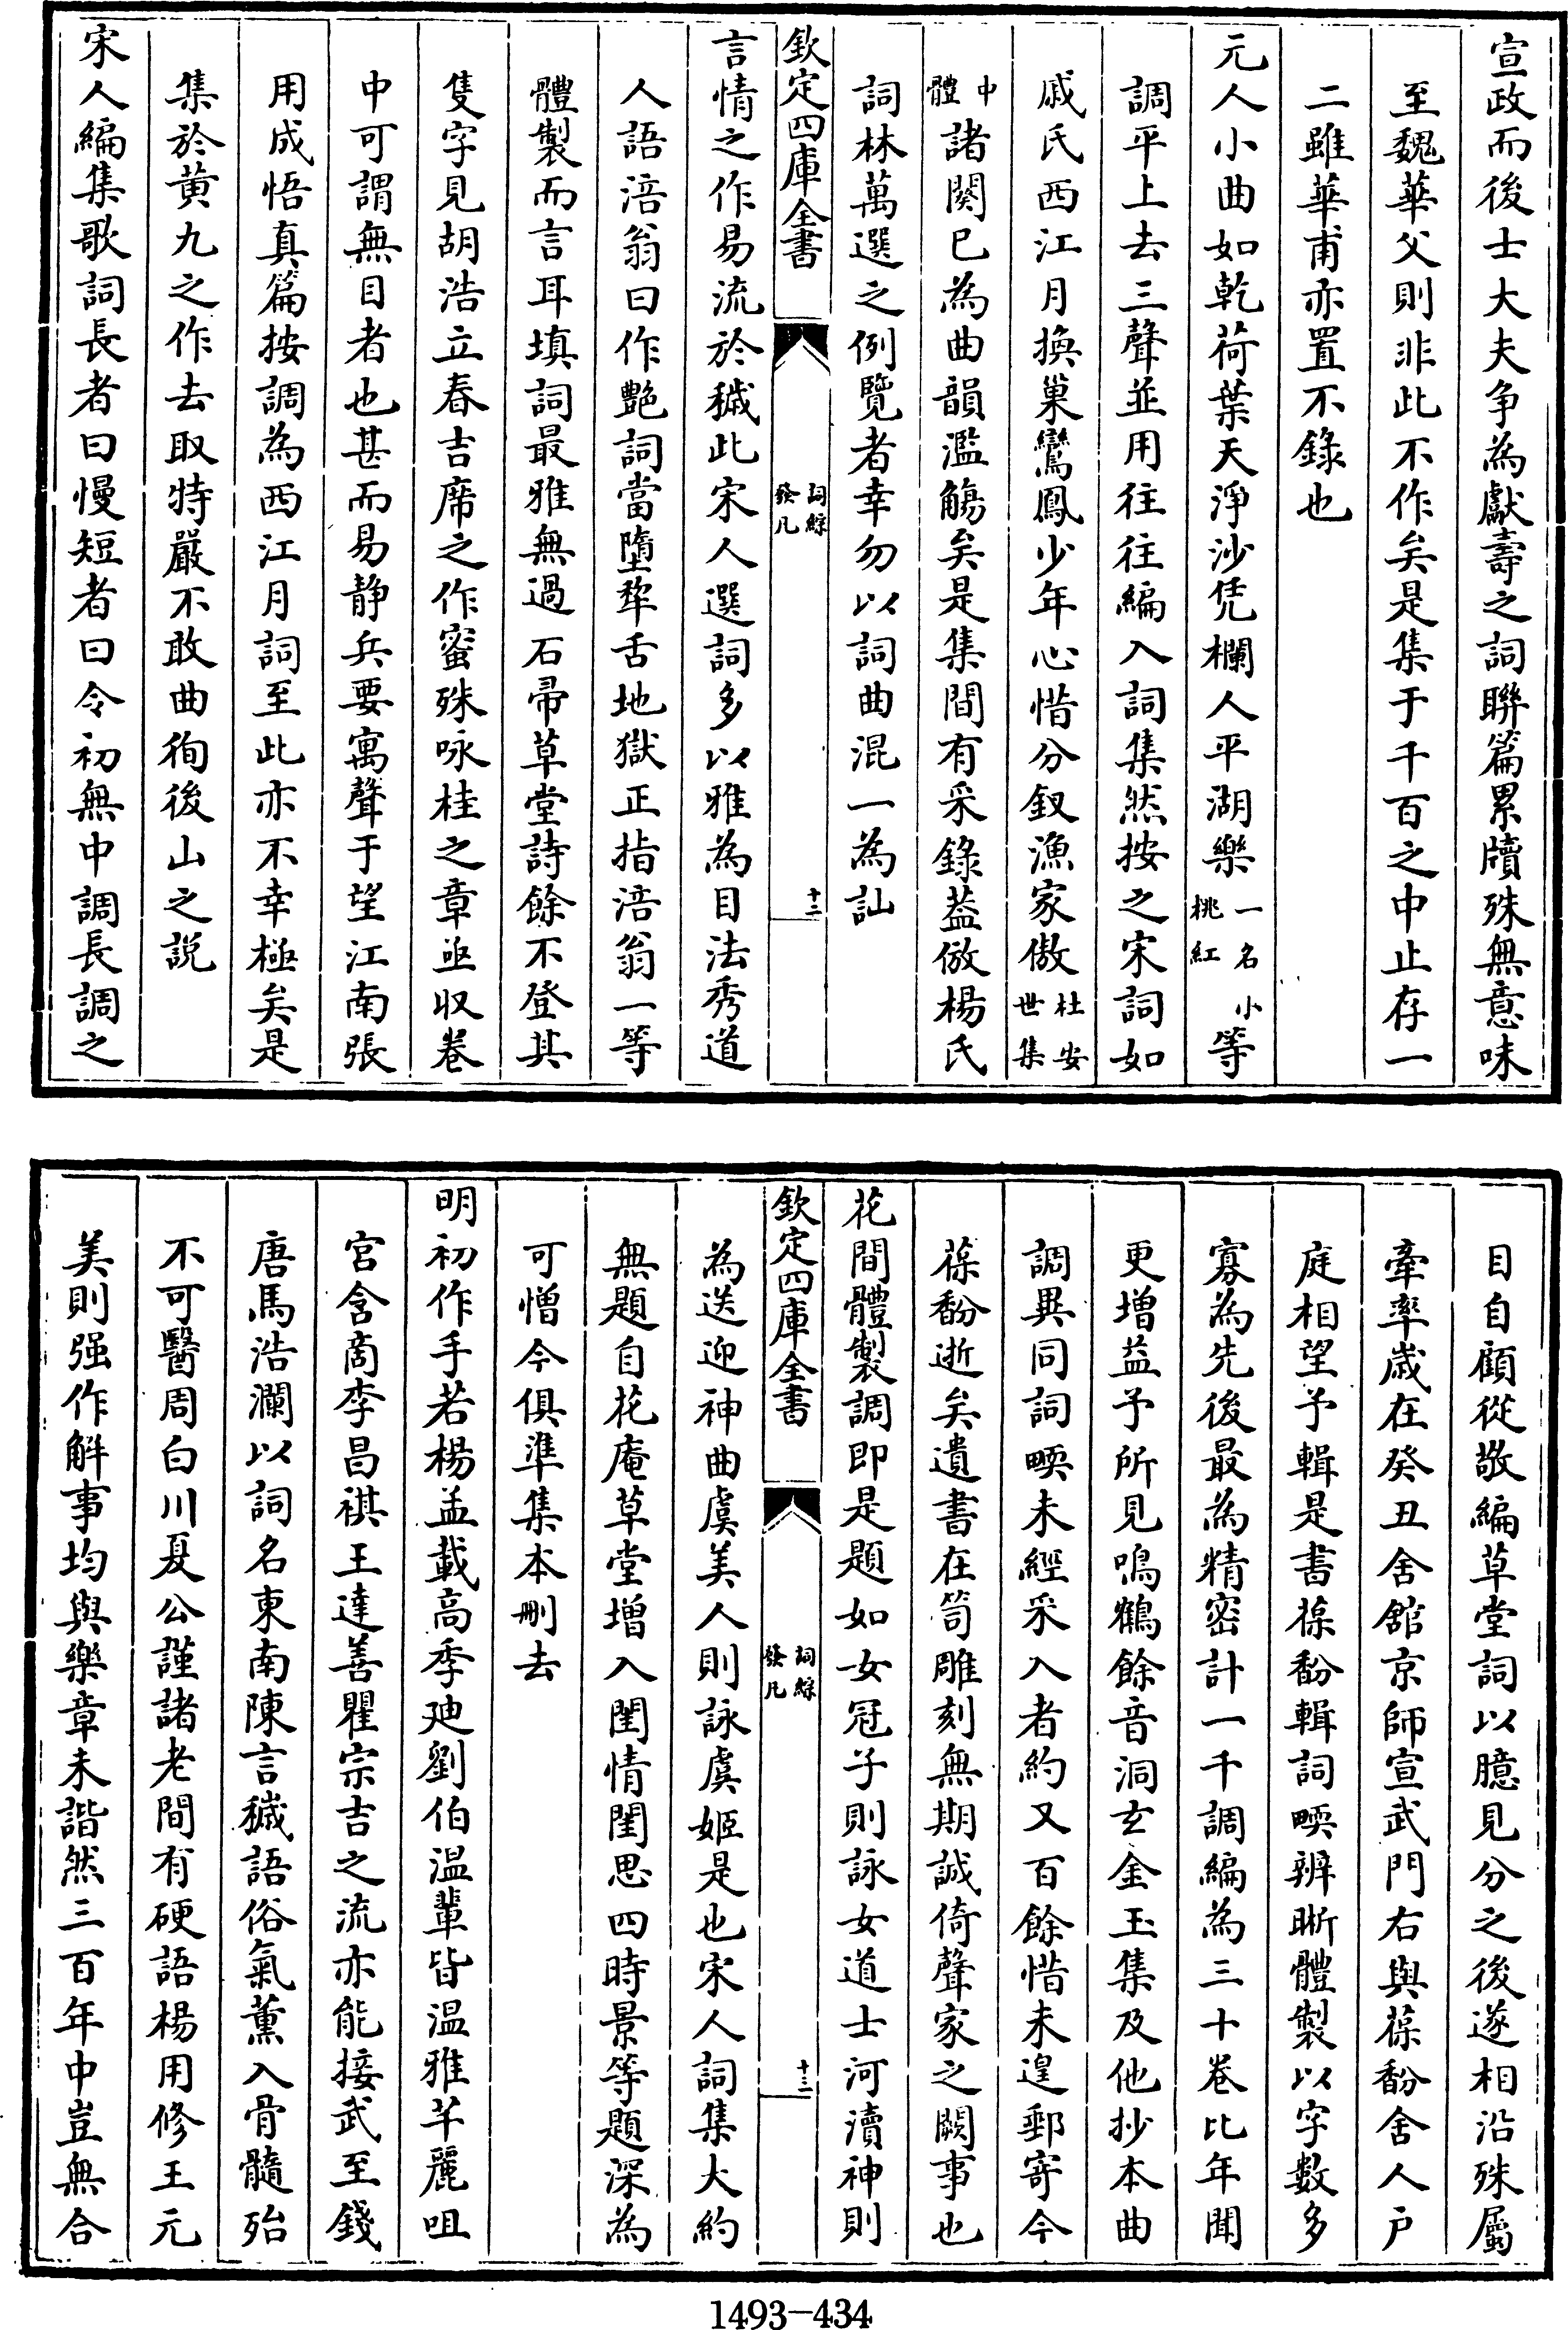 宣政而後士大夫争為獻壽之詞聯篇累牘殊無意味
至魏華父則非此不作矣是集于千百之中止存一
二雖華甫亦置不錄也
元人小曲如乾荷葉天淨沙凭欄人平湖樂一名小桃紅等
調平上去三聲並用往往編入詞集然按之宋詞如
戚氏西江月換巢鸞鳳少年心惜分釵漁家傲杜安世集
中體諸闋已為曲韻濫觴矣是集間有采錄蓋倣楊氏
詞林萬選之例覽者幸勿以詞曲混一為訕
欽定四庫全書
詞綜發凡
十二
言情之作易流於穢此宋人選詞多以雅為目法秀道
人語涪翁曰作艶詞當墮犂舌地獄正指涪翁一等
體製而言耳填詞最雅無過石帚草堂詩餘不登其
隻字見胡浩立春吉席之作蜜殊咏桂之章亟収卷
中可謂無目者也甚而易静兵要寓聲于望江南張
用成悟真篇按調為西江月詞至此亦不幸極矣是
集於黄九之作去取特嚴不敢曲徇後山之説
宋人編集歌詞長者曰慢短者曰令初無中調長調之
目自顧從敬編草堂詞以臆見分之後遂相沿殊屬
牽率歲在癸丑舍館京師宣武門右與葆馚舍人户
庭相望予輯是書葆馚輯詞㬇辨晰體製以字數多
寡為先後最為精密計一千調編為三十卷比年聞
更增益予所見鳴鶴餘音洞玄金玉集及他抄本曲
調異同詞㬇未經采入者約又百餘惜未遑郵寄今
葆馚逝矣遺書在笥雕刻無期誠倚聲家之闕事也
花間體製調即是題如女冠子則詠女道士河瀆神則
欽定四庫全書
詞綜發凡
十三
為送迎神曲虞美人則詠虞姬是也宋人詞集大約
無題自花庵草堂增入閨情閨思四時景等題深為
可憎今俱準集本刪去
明初作手若楊孟載高季廸劉伯温輩皆温雅芊麗咀
宫含商李昌祺王達善瞿宗吉之流亦能接武至錢
唐馬浩瀾以詞名東南陳言穢語俗氣薰入骨髓殆
不可醫周白川夏公謹諸老間有硬語楊用修王元
美則强作解事均與樂章未諧然三百年中豈無合
1493-434